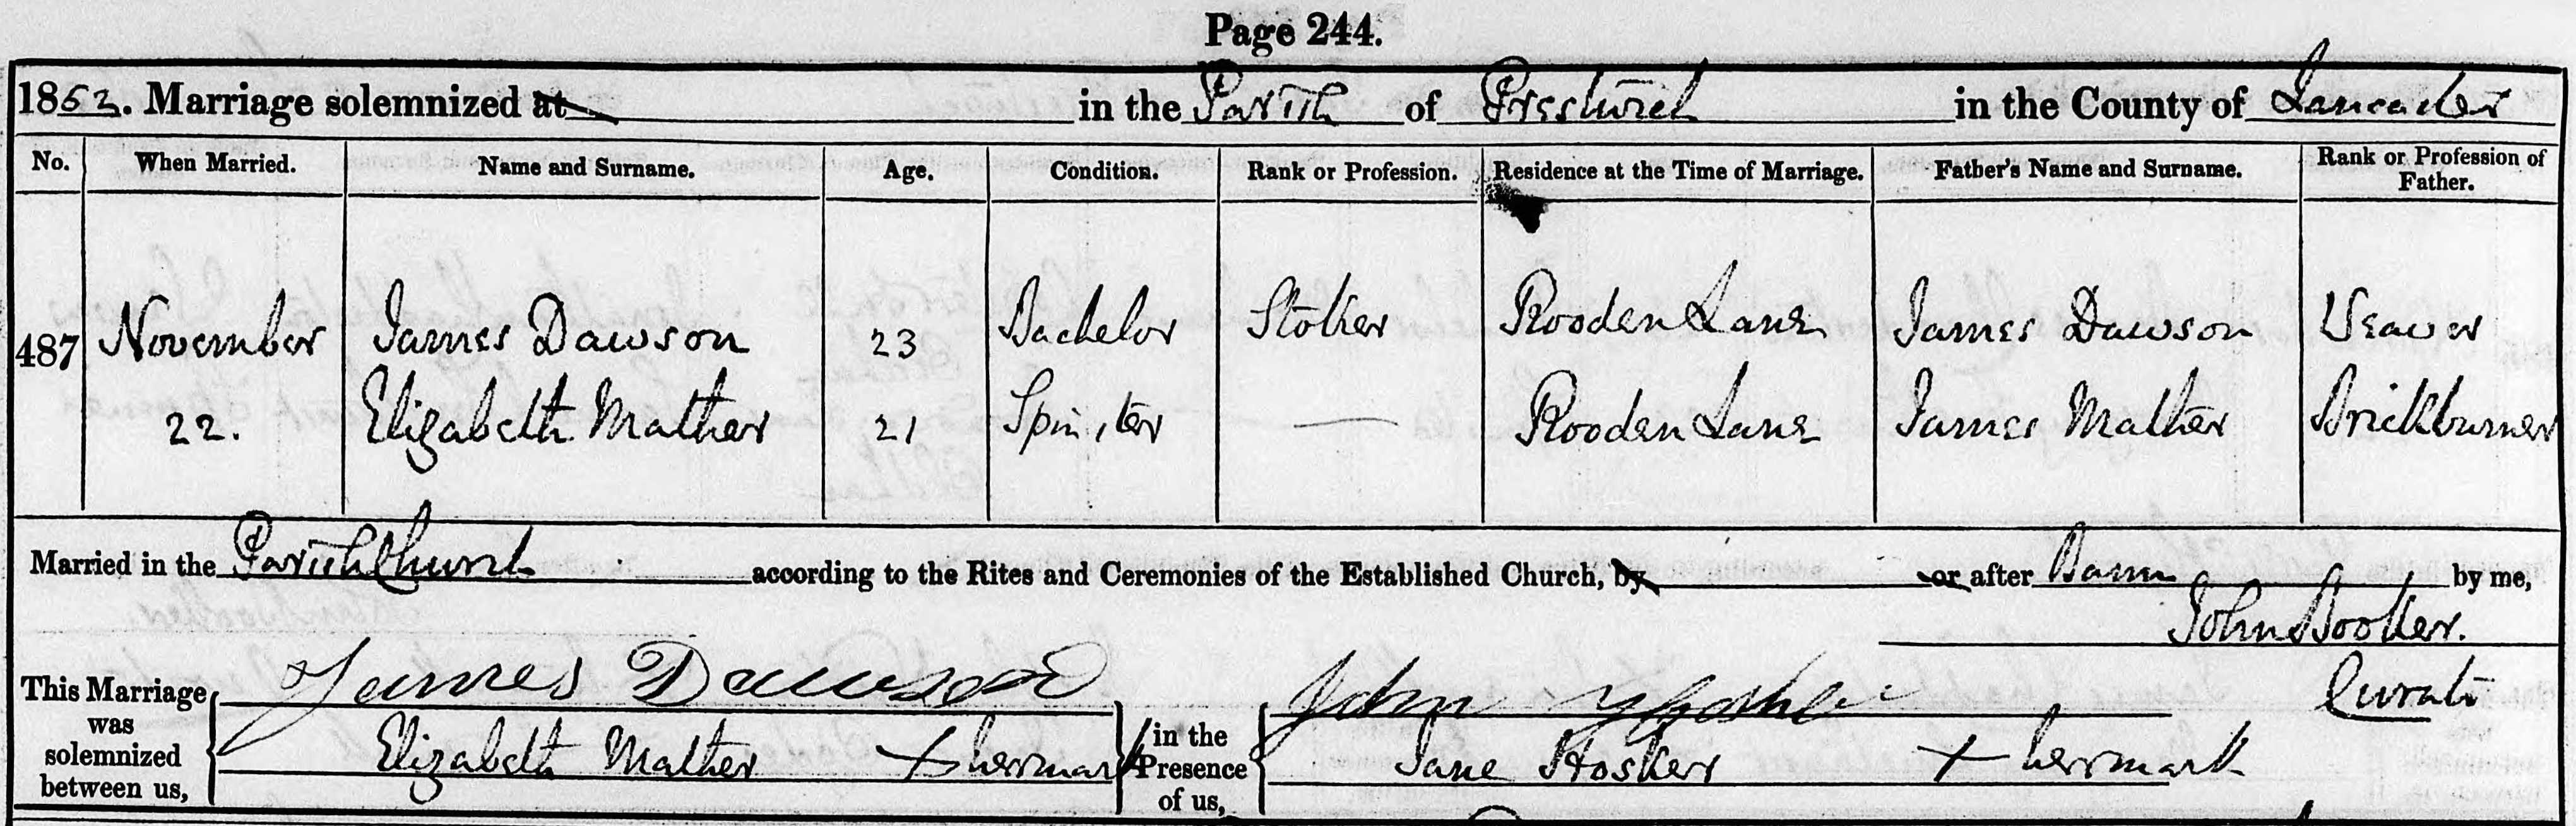 Page 244.
1852. Marriage solemnized at in the Parish of Prestwich in the County of Lancaster
No. When Married. Name and Surname. Age. Condition. Rank or Profession. Residence at the Time of Marriage. Father's Name and Surname. Rank or Profession of Father.
487 November James Dawson 23 Bachelor Stoker Rooden Lane James Dawson Weaver
22. Elizabeth Mather 21 Spinster — Rooden Lane James Mather Brickburner
Married in the Parish Church according to the Rites and Ceremonies of the Established Church, by or after Banns by me,
John Booker.
Curate
This Marriage was solemnized between us, James Dawson in the Presence of us, John Hosker
Elizabeth Mather X her mark Jane Hosker X her mark